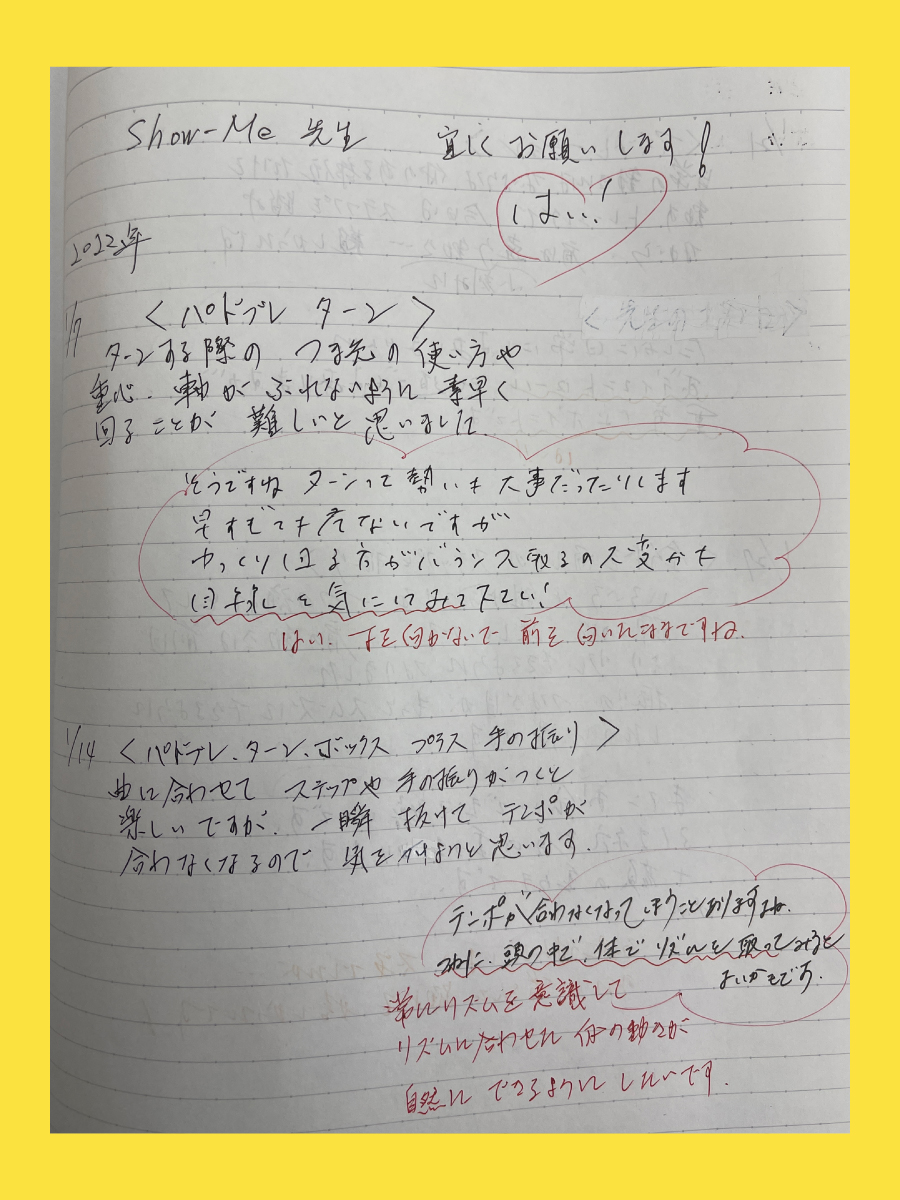 Show-Me 先生 宜しくお願いします!
はい!
2022年
1/7 <パドブレ ターン>
ターンする際の つま先の使い方や
重心、軸がぶれないように 素早く
回ることが 難しいと思いました。
そうですね ターンって勢いも大事だったりします
早すぎても危ないですが
ゆっくり回る方がバランス取るの大変かも
目線を気にしてみて下さい!
はい。下を向かないで 前を向いたままですね。
1/14 <パドブレ、ターン、ボックス プラス 手の振り>
曲に合わせて ステップや 手の振りがつくと
楽しいですが、一瞬 抜けて テンポが
合わなくなるので 気を付けようと思います。
テンポが合わなくなってしまうことありますよね。
つねに、頭の中で、体で リズムを取ってみると
よいかもです。
常にリズムを意識して
リズムに合わせた 体の動きが
自然に できるように したいです。